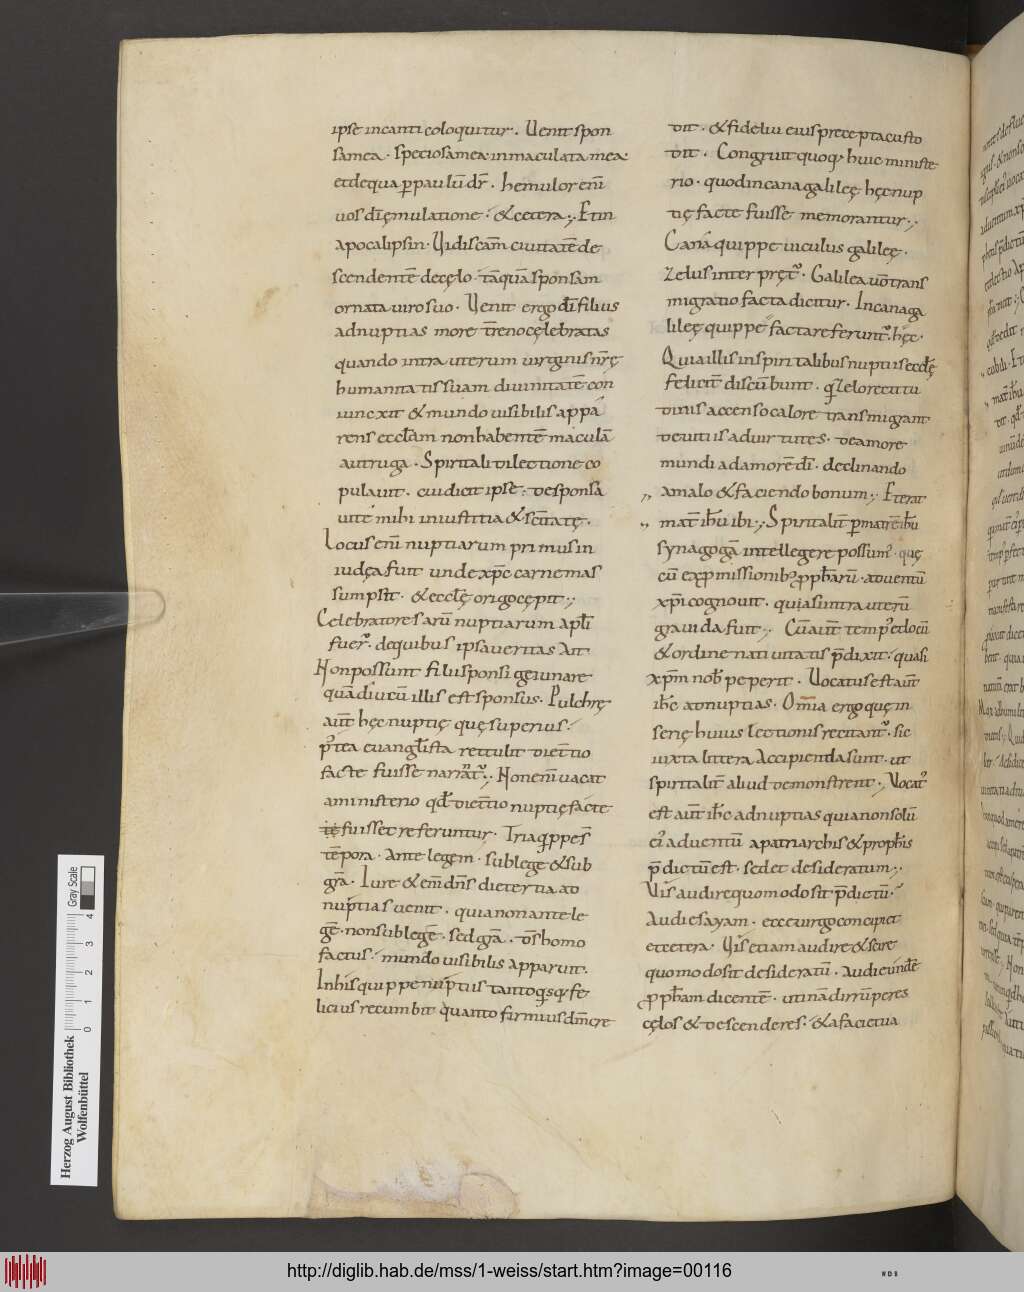 ipse incanti coloquitur. Uenit spon
sa mea. speciosa mea inmaculata mea
et de qua p̄ paulū dr̄. hemulor enī
uos dī ęmulatione. & cetera., Et in
apocalipsin. Uidi scām ciuitatē de
scendentē de cęlo. tāquā sponsam
ornata uiro suo. Uenit ergo dī filius
ad nuptias more trēno cęlebratas
quando intra uterum uirginis nr̄ę
humanitatis suam diuinitatē con
iuncxit & mundo uisibilis appa
rens ecclām non habentē maculā
aut ruga. Spiritali dilectione co
pulauit. cui dicit ipse. desponsa
uite mihi in iustitia & scītatę.
Locus enī nuptiarum primus in
iudęa fuit unde xp̄c carnem as
sumpsīt. & ecclę̄ origo cępit.,
Celebratores arū nuptiarum apl̄i
fuer̄. de quibus ipsa ueritas ait
Non possunt filii sponsi geiunare
quādiu cū illis est sponsus. Pulchrę
aūt hęc nuptię quę superius.
p̄tea euanglīsta rettulit die tētio
facte fuisse narrat᷒., Non enī uacat
a ministerio qd̄ die tētio nuptię facte
tę fuisset referuntur. Tria q̄ppe s̄
tēpora. Ante legem. sub lege & sub
grā. Iure & em̄ dn̄s die tertia ad
nuptias uenit. quia non ante le
gē. non sub legē. sed grā. ds̄ homo
factus. mundo uisibilis apparuit.
In his quippe nuptiis tanto q̄sq; fe
licius recumbit quanto firmius dm̄ cre
dit. & fideliū eius precepta custo
dit. Congruit quoq; huic ministe
rio. quod in cana galileę hęc nup
tię facte fuisse memorantur.,
Cana quippe uiculus galileę.
Zelus interpręt᷒. Galilea uō trans
migratio facta dicitur. In cana ga
lileę quippe facta referunt᷒. hęc.
Quia illis in spiritalibus nuptiis ecclę̄
felicit̄ discūbunt. q̄ zelo recti tu
dinis accenso calore transmigrant
de uitiis ad uirtutes. de amore
mundi ad amorē dī. declinando
a malo & faciendo bonum., Et erat
mat̄ ih̄u ibi., Spiritalit̄ p̄ matrē ih̄u
synagogā intellegere possum᷒. quę
cū ex p̄missionib; pph̄arū. aduentū
xp̄i cognouit. quasi intra uterū
grauida fuit., Cū aūt temp᷒ et locū
& ordine natiuitatis p̄dixit. quasi
xp̄m nob̄ peperit. Uocatus est aūt
ih̄c ad nuptias. Omīa ergo quę in
serię huius lectionis recitant᷒. sic
iuxta littera accipienda sunt. ut
spiritalit̄ aliud demonstrent., Uocat᷒
est aūt ih̄c ad nuptias quia non solū
ei᷒ aduentū a patriarchis & proph̄is
p̄dictū est. sed et desideratum.,
Uis audire quomodo sit p̄dictū.
Audi esayam. ecce uirgo concipiet
et cetera. Uis etiam audire & scire
quomodo sit desideratū. Audi eundē
pph̄am dicentē. utinā dirrūperes
cęlos & descenderes. & a facie tua
Herzog August Bibliothek
Wolfenbüttel
Gray Scale
0 1 2 3 4
http://diglib.hab.de/mss/1-weiss/start.htm?image=00116